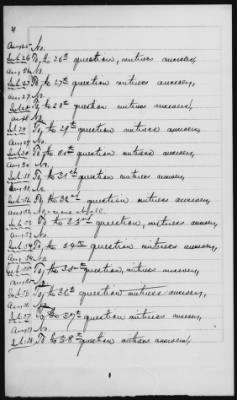 Ans 25 No.
Int. 26 To 26th question, witness answers,
Ans 26. No.
Int. 27 To 27th question witness answers,
Ans 27. No.
Int. 28 To 28th question witness answers,
Ans 28 No.
Int. 29 To, 29th question witness answers,
Ans 29. No.
Int. 30 To 30th question witness answers,
Ans 30. No.
Int. 31 To 31st question witness answers,
Ans 31. No.
Int. 32 To 32nd question witness answers,
Ans 32 No
Int. 33 To 33rd question, witness answers,
Int. 34 To 34th question witness answers,
Ans. 34. No.
Int. 35 To, 35th question, witness answers,
Ans 35 No.
Int. 36 To, 36th question witness answers,
Ans 36 No.
Int. 37 To 37th question witness answers,
Ans 37 No.
Int. 38 To 38th question witness answers,